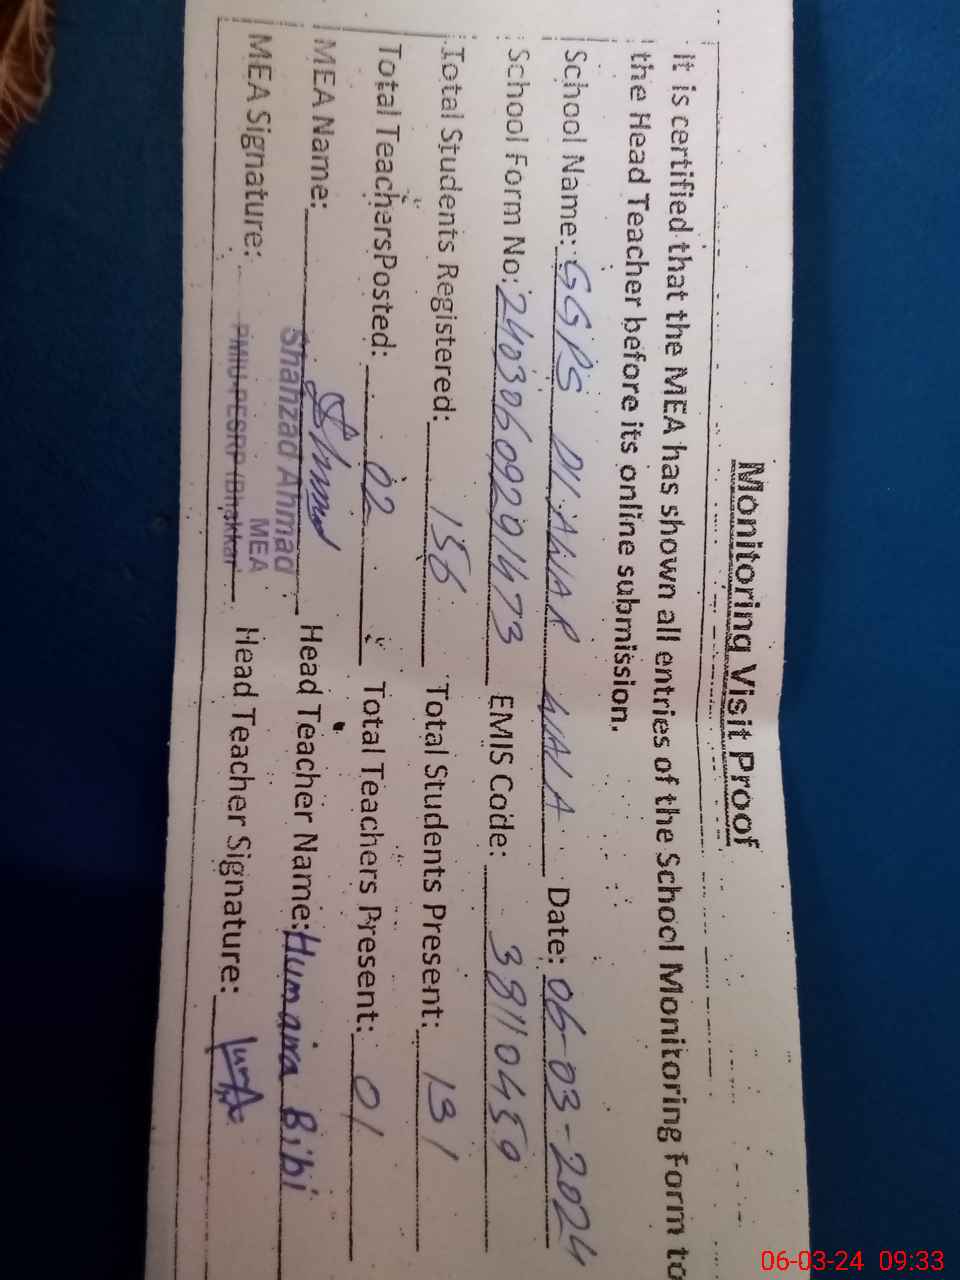 Monitoring Visit Proof
It is certified that the MEA has shown all entries of the School Monitoring Form to
the Head Teacher before its online submission.
School Name: GGPS DILAWAR WALA Date: 06-03-2024
School Form No: 24030609291473 EMIS Code: 38110459
Total Students Registered: 156 Total Students Present: 131
Total TeachersPosted: 02 Total Teachers Present: 01
MEA Name: Shahzad Ahmad Head Teacher Name: Humaira Bibi
MEA
MEA Signature: PMIU-PESRP (Bhakkar) Head Teacher Signature:
06-03-24 09:33